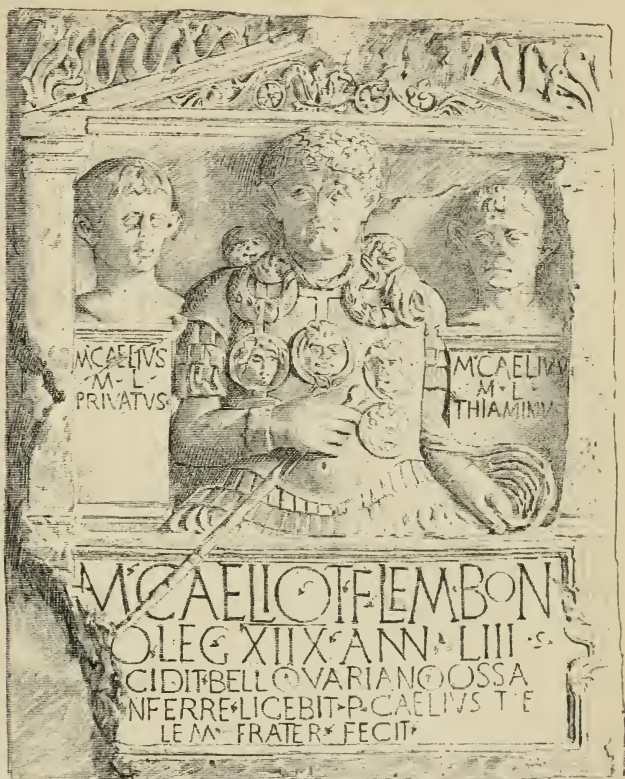 M·CAELIVS
·M·L·
PRIVATVS·
M·CAELIVS
M·L·
THIAMINVS
M·CAELIO·T·F·LEM·BON
O·LEG·XIIX·ANN·LIII·S·
CIDIT·BELLO·VARIANO·OSSA
NFERRE·LICEBIT·P·CAELIVS·T·F
LEM·FRATER·FECIT·